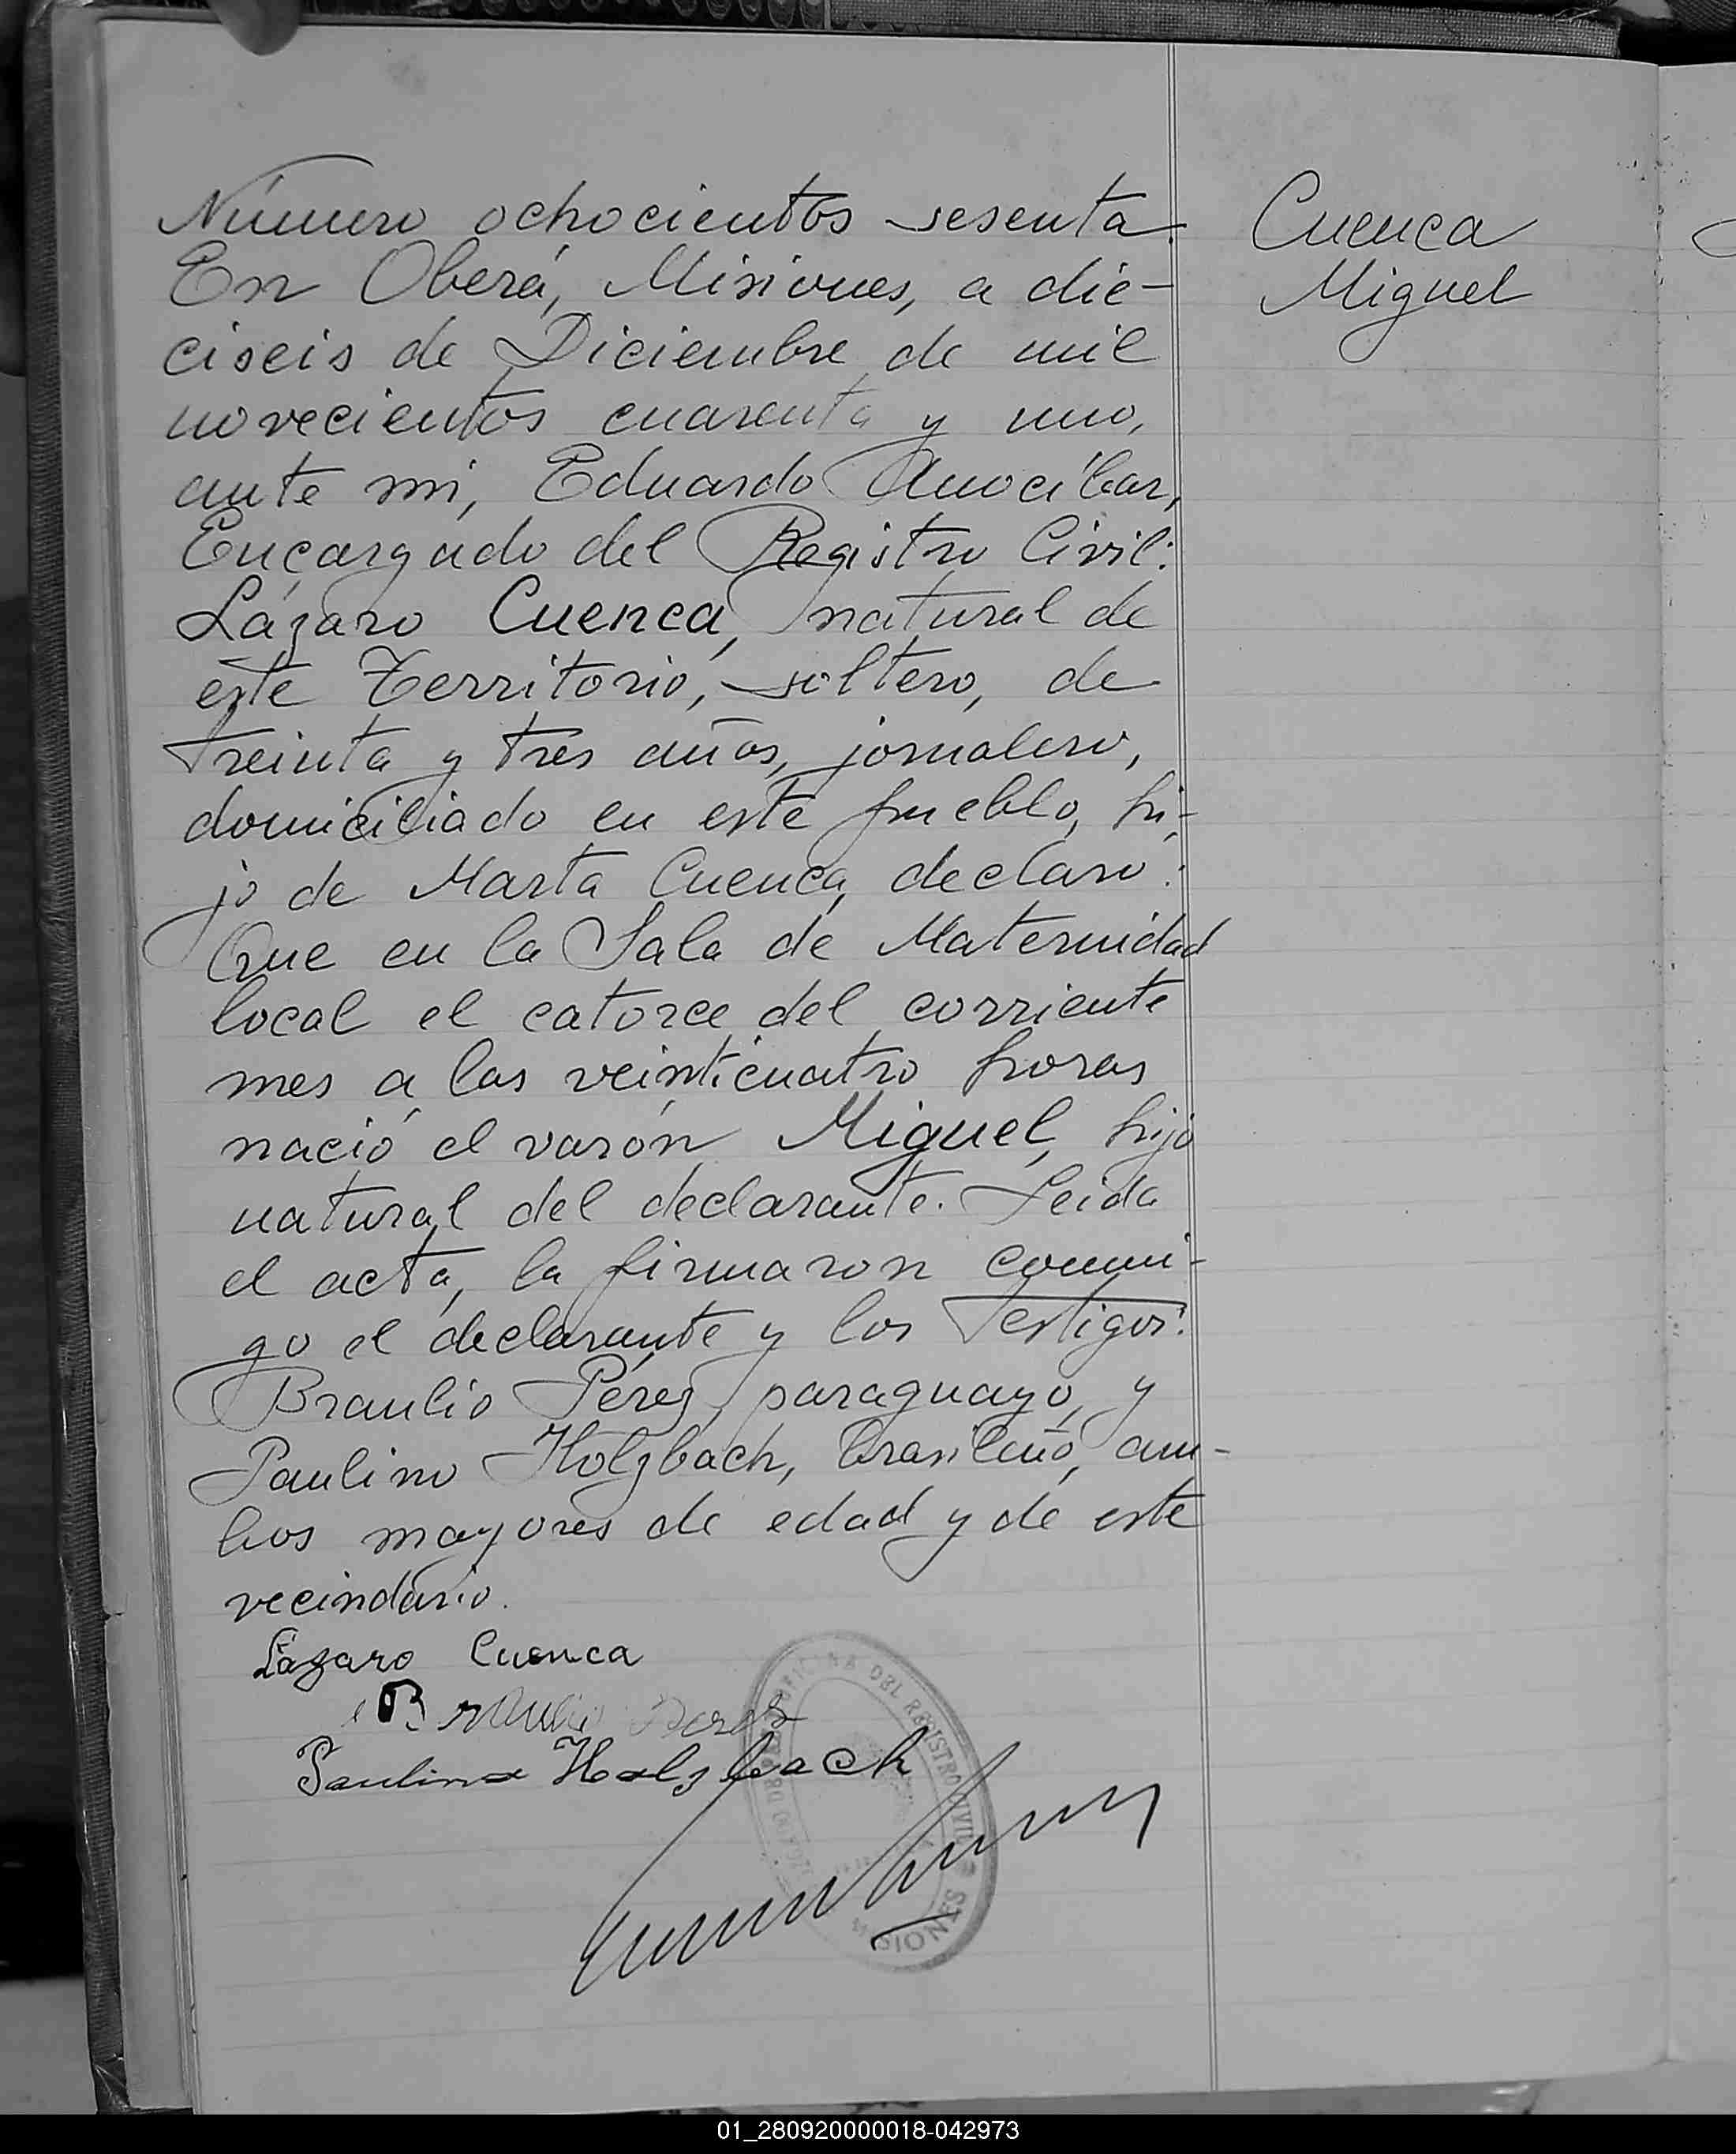 Número ochocientos sesenta.
Cuenca
En Oberá, Misiones, a die-
Miguel
ciseis de Diciembre de mil
novecientos cuarenta y uno,
ante mi, Eduardo Anocíbar,
Encargado del Registro Civil:
Lázaro Cuenca, natural de
este Territorio, soltero, de
treinta y tres años, jornalero,
domiciliado en este pueblo, hi-
jo de Marta Cuenca, declaró:
Que en la Sala de Maternidad
local el catorce del corriente
mes a las veinticuatro horas
nació el varón Miguel, hijo
natural del declarante. Leida
el acta, la firmaron conmi-
go el declarante y los testigos:
Braulio Pérez, paraguayo, y
Paulino Holzbach, brasileño, am-
bos mayores de edad y de este
vecindario.
Lázaro Cuenca
Braulio Perez
Paulino Holzbach
OFICINA DEL REGISTRO CIVIL
MISIONES
01_280920000018-042973